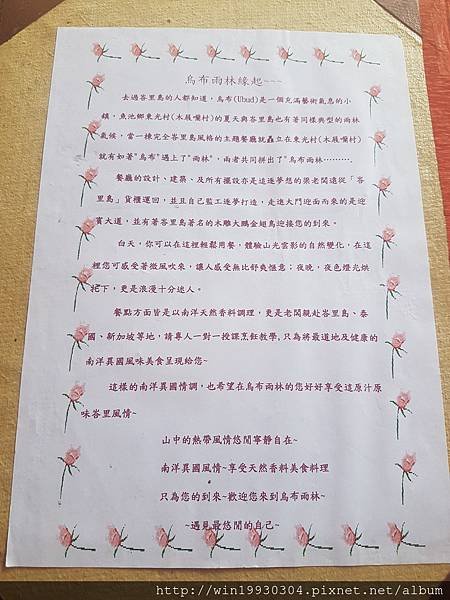 烏布雨林緣起~~~
去過峇里島的人都知道，烏布(Ubud)是一個充滿藝術氣息的小
鎮，魚池鄉東光村(木屐囒村)的夏天與峇里島也有著同樣典型的雨林
氣候，當一棟完全峇里島風格的主題餐廳就矗立在東光村(木屐囒村)
就有如著"烏布"遇上了"雨林"，兩者共同拼出了"烏布雨林..........
餐廳的設計、建築、及所有擺設亦是追逐夢想的梁老闆遠從「峇
里島」貨櫃運回，並且自己監工逐夢打造，走進大門迎面而來的是迎
賓大道，並有著峇里島著名的木雕大鵬金翅鳥迎接您的到來。
白天，你可以在這裡輕鬆用餐，體驗山光雲影的自然變化，在這
裡您可感受著微風吹來，讓人感受無比舒爽愜意；夜晚，夜色燈光烘
托下，更是浪漫十分迷人。
餐點方面皆是以南洋天然香料調理，更是老闆親赴峇里島、泰
國、新加坡等地，請專人一對一授課烹飪教學，只為將最道地及健康的
南洋異國風味美食呈現給您~
這樣的南洋異國情調，也希望在烏布雨林的您好好享受這原汁原
味峇里風情~
山中的熱帶風情悠閒寧靜自在~
南洋異國風情~享受天然香料美食料理
只為您的到來~歡迎您來到烏布雨林~
~遇見最悠閒的自己~
http://win19930304.pixnet.net/album